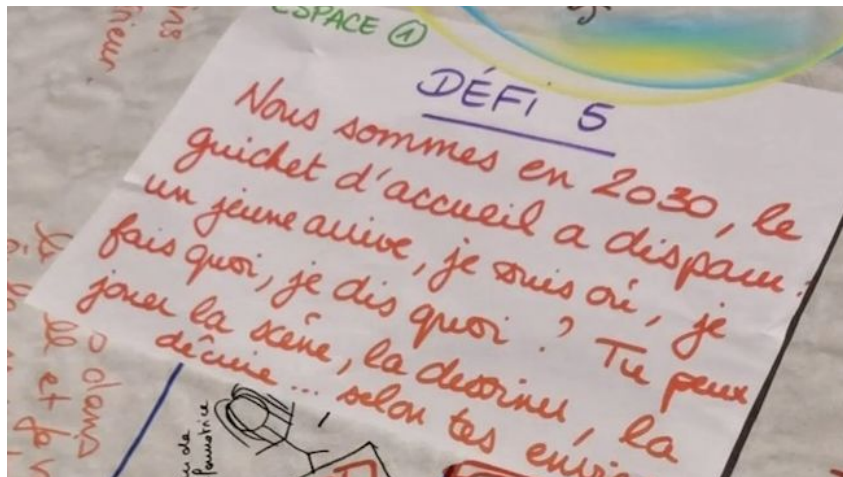 ESPACE 1
DÉFI 5
Nous sommes en 2030, le
guichet d'accueil a disparu :
un jeune arrive, je suis où, je
fais quoi, je dis quoi ? Tu peux
jouer la scène, la dessiner, la
décrire ... selon tes
dans
et